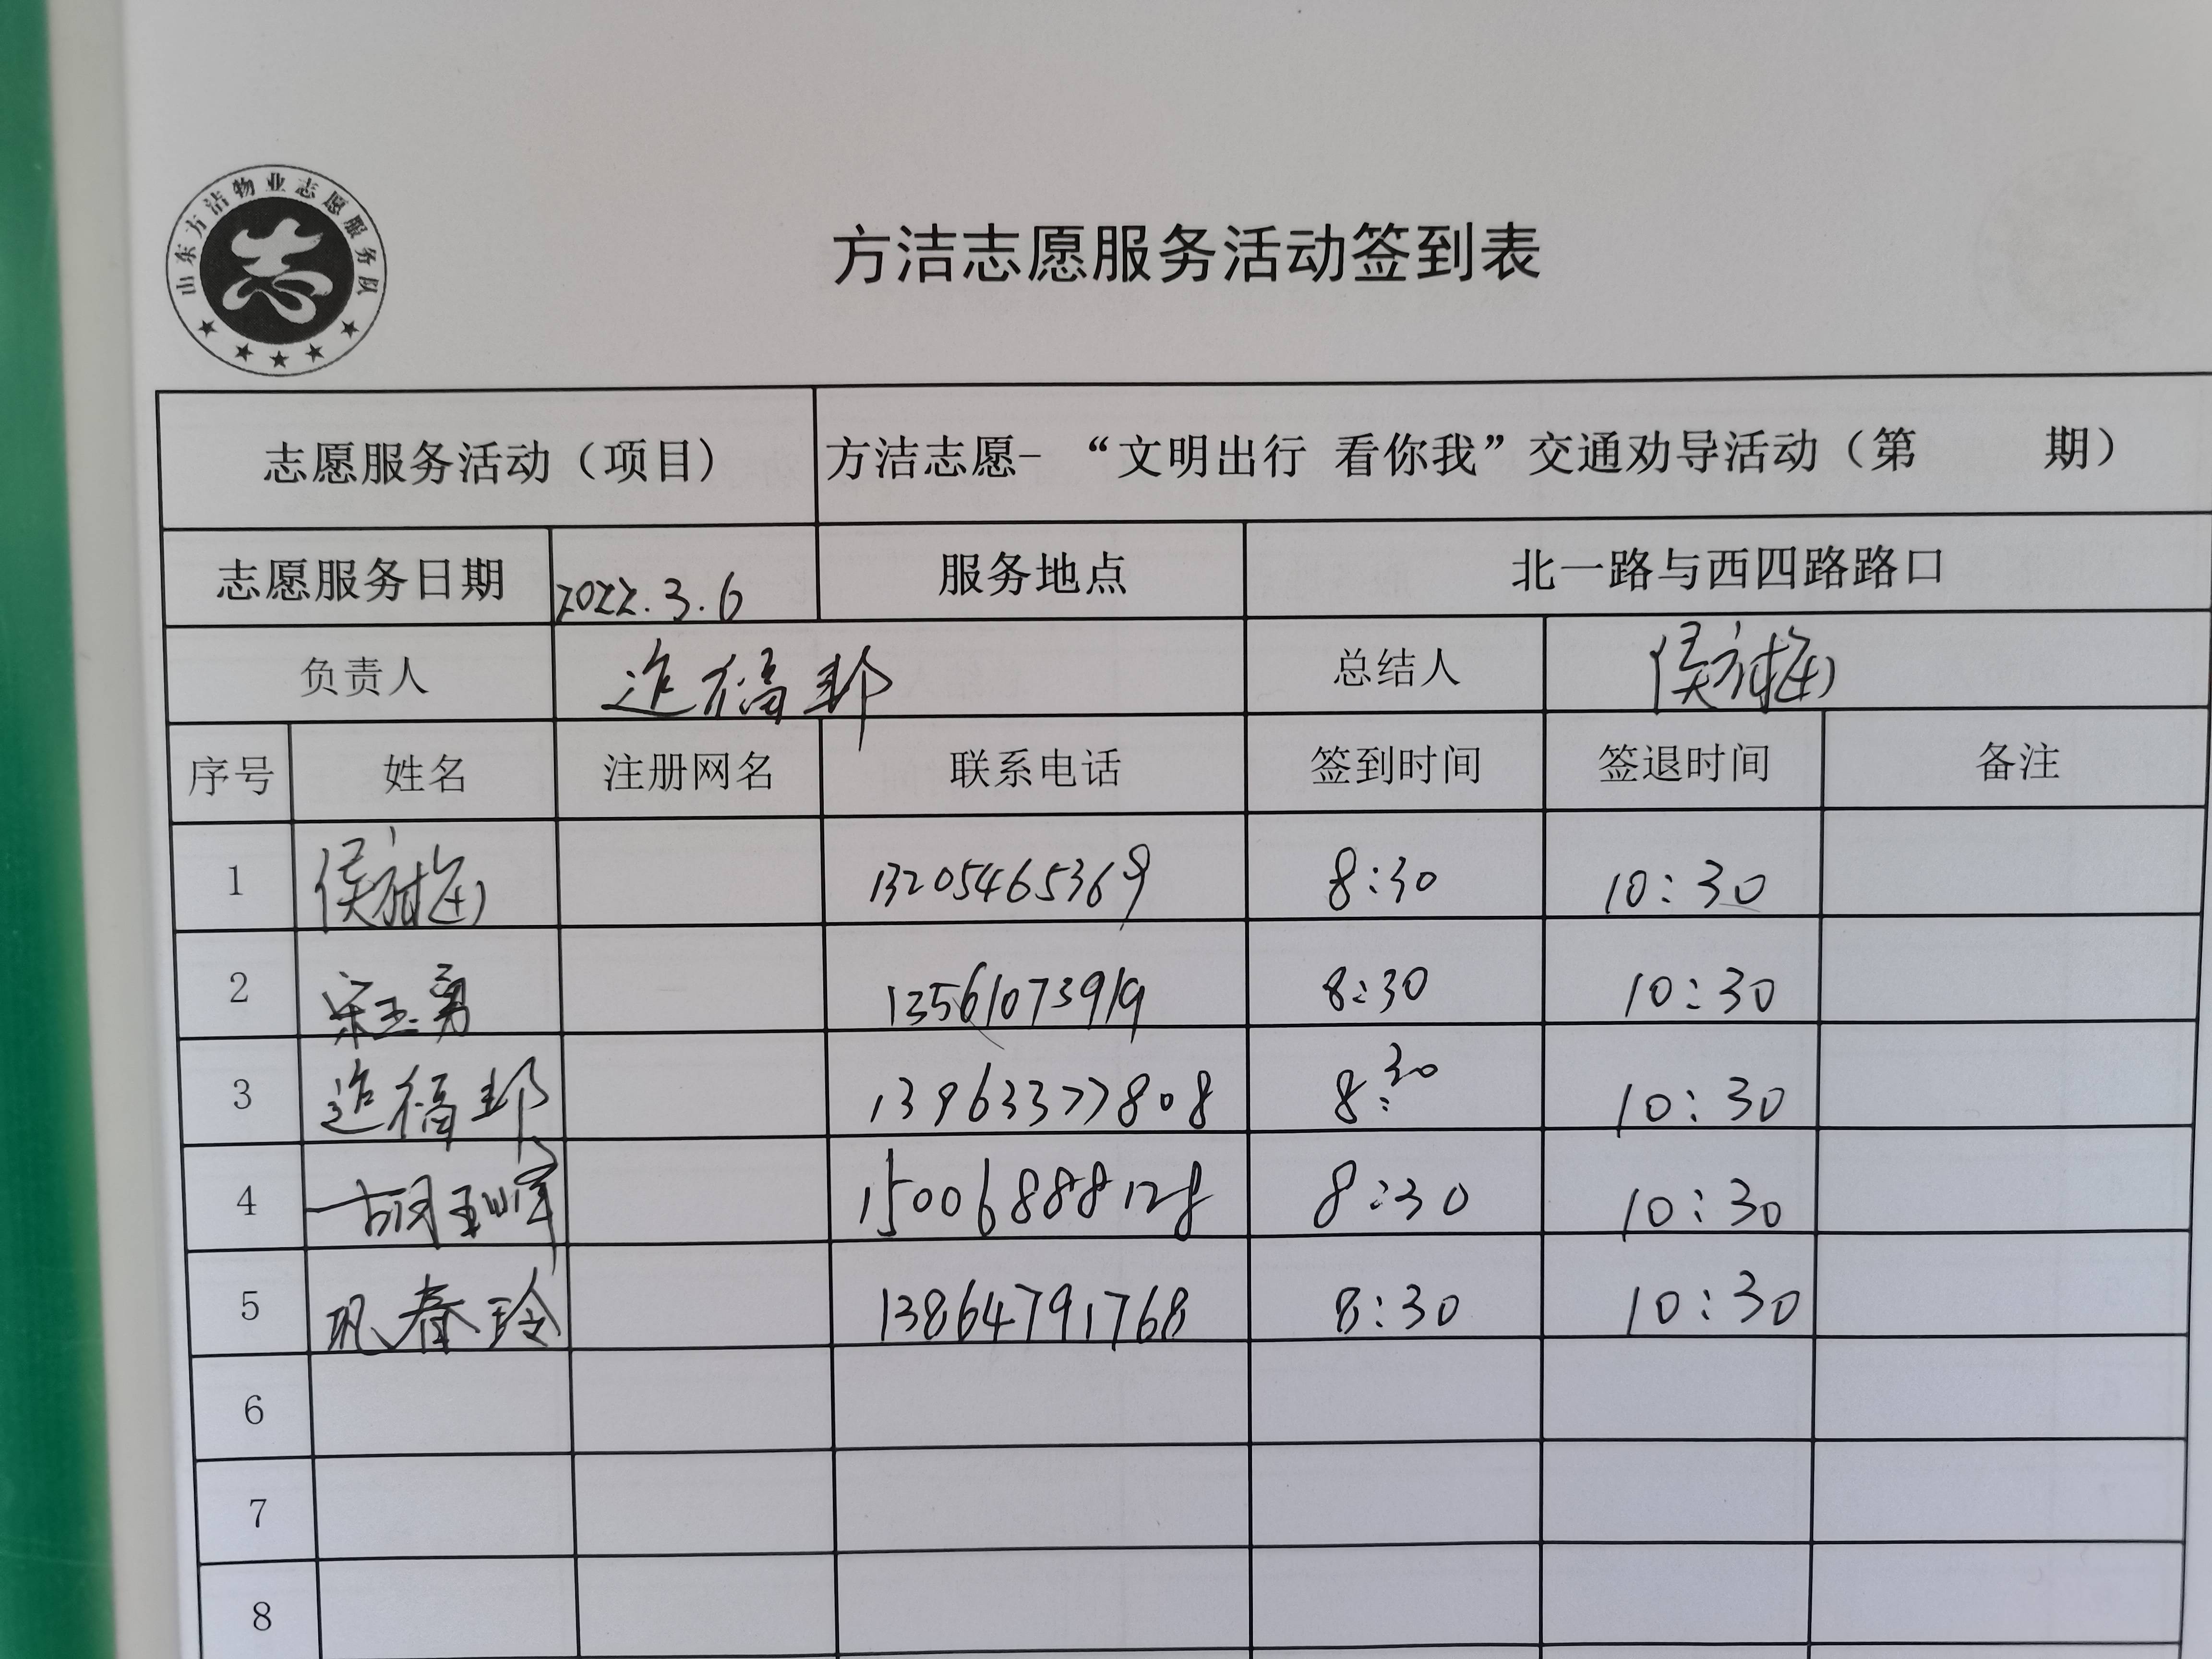 山东方洁物业志愿服务队
方洁志愿服务活动签到表
志愿服务活动（项目） 方洁志愿-“文明出行 看你我”交通劝导活动（第 期）
志愿服务日期 2022.3.6 服务地点 北一路与西四路路口
负责人 追福邦 总结人 侯
序号 姓名 注册网名 联系电话 签到时间 签退时间 备注
1 侯 13205465369 8:30 10:30
2 宋玉勇 13561073919 8:30 10:30
3 追福邦 13963377808 8:30 10:30
4 15006888128 8:30 10:30
5 巩春玲 13864791768 8:30 10:30
6
7
8